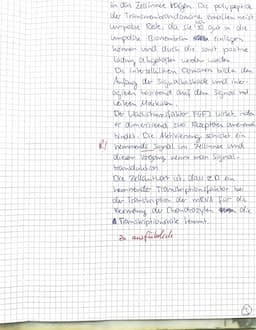 in das Zellinnere ragen. Die polypeptide
der Transmembrandomäne besitzen meist
unpolare Reste, da sie so gut in die
unpolare Biomembran einlagern
können und durch die sonst positive
Ladung abgestoßen werden würden.
Die intrazellulären Domänen bilden den
Anfang der Signalkaskade und
reagieren basierend auf dem Signal mit
Molekülen.
Der Wachstumsfaktor FGF1 wirkt, indem
er dimerisiert zwei Rezeptoren aneinander
bindet. Die Aktivierung schickt ein
hemmendes Signal ins Zellinnere und
diesen Vorgang nennt man Signal-
transduktion.
Die Zellantwort ist, dass z.B. ein
hemmender Transkriptionsfaktor bei
der Transkription der mRNA für die
Vermehrung der Chondrozyten die
Transkriptionsrate hemmt.
zu ausführlich